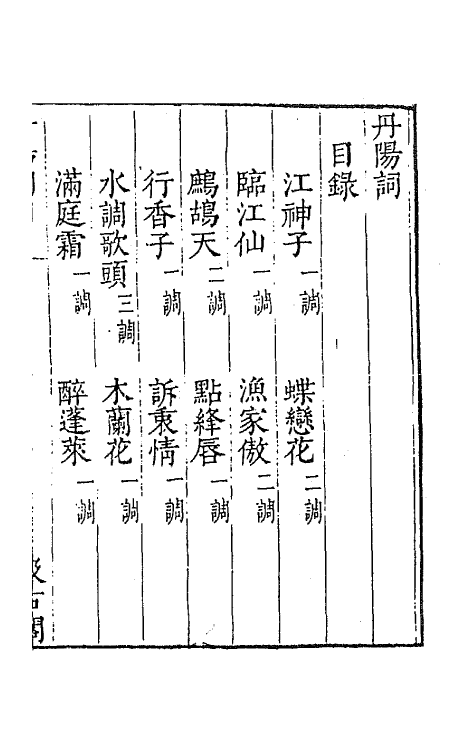 丹陽詞
目錄
江神子一調　蝶戀花二調
臨江仙一調　漁家傲二調
鷓鴣天二調　點絳唇一調
行香子一調　訴衷情一調
水調歌頭三調　木蘭花一調
滿庭霜一調　醉蓬萊一調